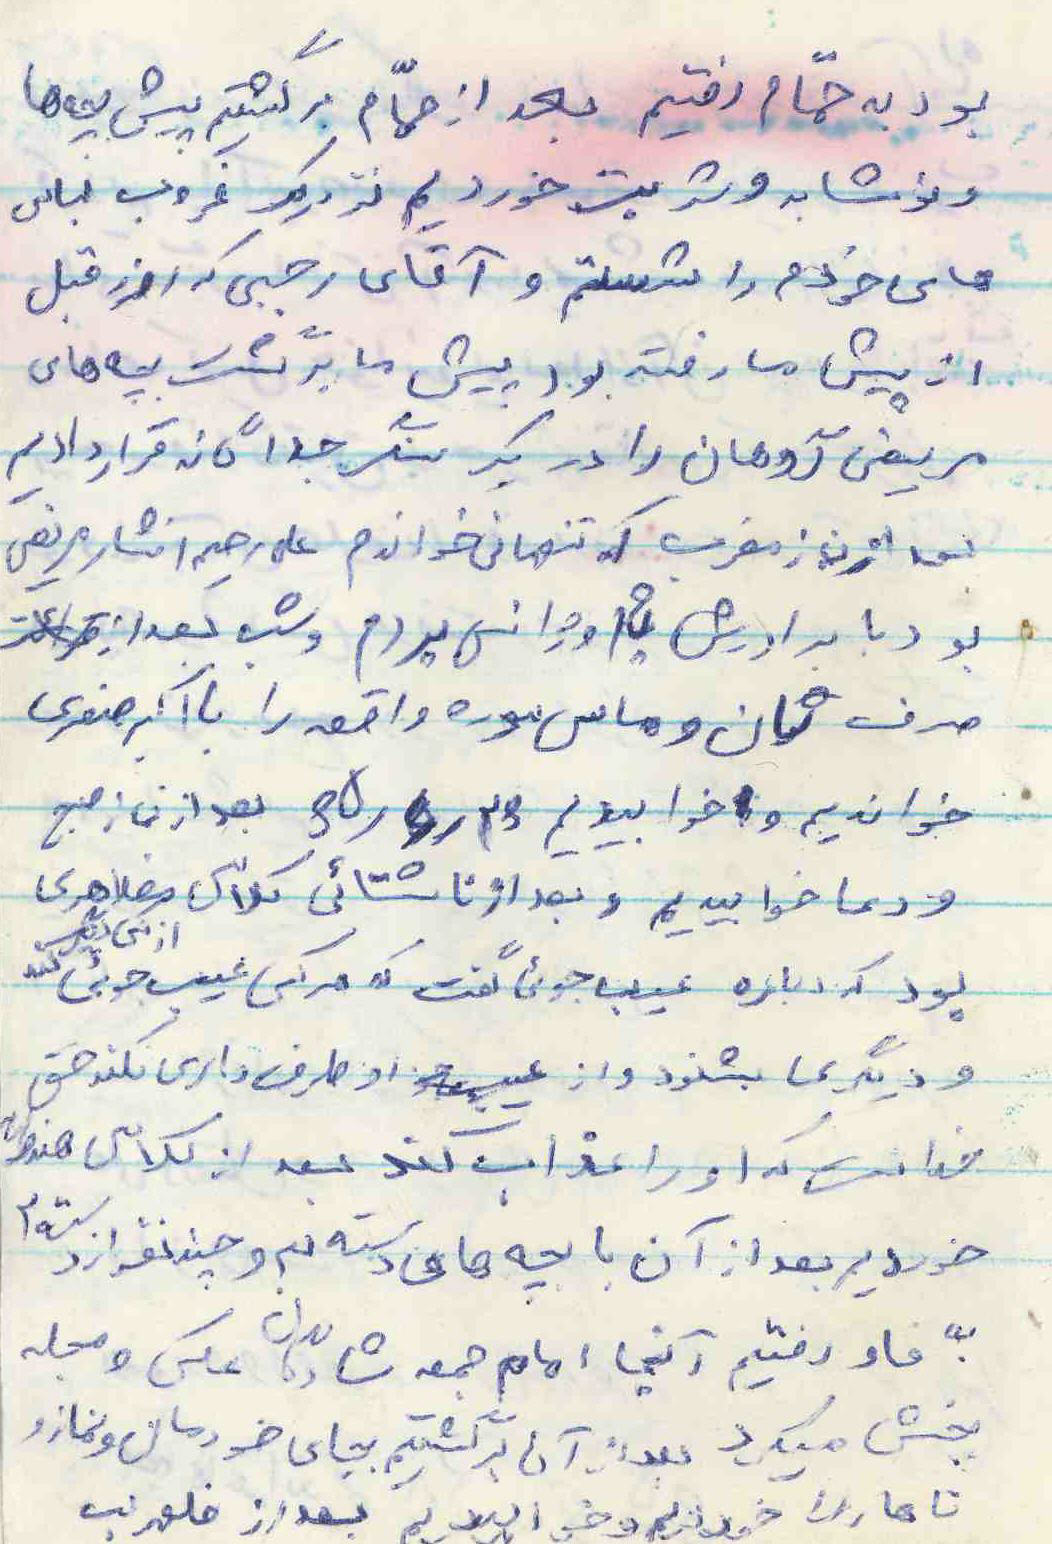 بود به حمّام رفتیم بعد از حمّام برگشتیم پیش بچه‌ها
و نوشابه و شربت خوردیم نزدیک غروب لباس
های خودم را شستم و آقای رجبی که روز قبل
از پیش ما رفته بود پیش ما برگشت بچه‌های
مریض گروهان را در یک سنگر جداگانه قرار دادیم
بعد از نماز مغرب که تنهائی خواندم علی‌رحیم افشار مریض
بود با برادرش به اورژانس بردم و شب بعد از
صرف نان و ماس سوره واقعه را با اکبر صفری
خواندیم و خوابیدیم بعد از نماز صبح
و دعا خوابیدیم و بعد از ناشتائی کلاس مظاهری
بود که درباره عیب جوئی گفت که هر کس عیب جوئی از کسی دیگر کند
و دیگری بشنود و از او طرف داری نکند حق
خداست که او را عذاب کند بعد از کلاس هندوانه
خوردیم بعد از آن با بچه های دسته یکم و چند نفر از دسته ۲
به فاو رفتیم آنجا امام جمعه عکس و مجله
پخش میکرد بعد از آن برگشتیم بجای خودمان و نماز و
ناهار را خوردیم و خوابیدیم بعد از ظهر